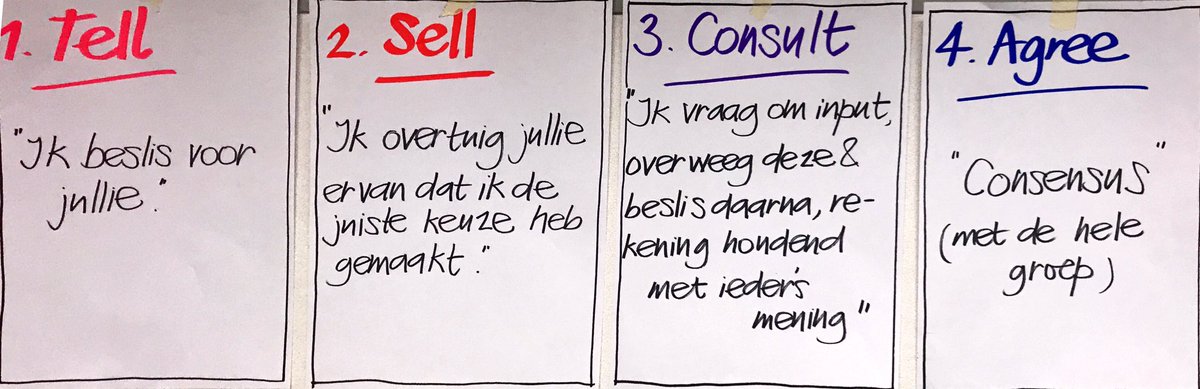 1. Tell
"Ik beslis voor
jullie."
2. Sell
"Ik overtuig jullie
ervan dat ik de
juiste keuze heb
gemaakt."
3. Consult
"Ik vraag om input,
overweeg deze &
beslis daarna, re-
kening houdend
met ieder's
mening"
4. Agree
"Consensus"
(met de hele
groep)